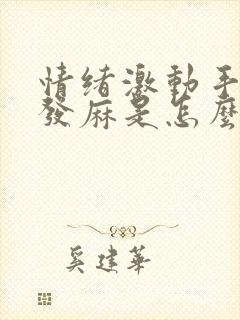 情绪激動手
發麻是怎麼
奚建華